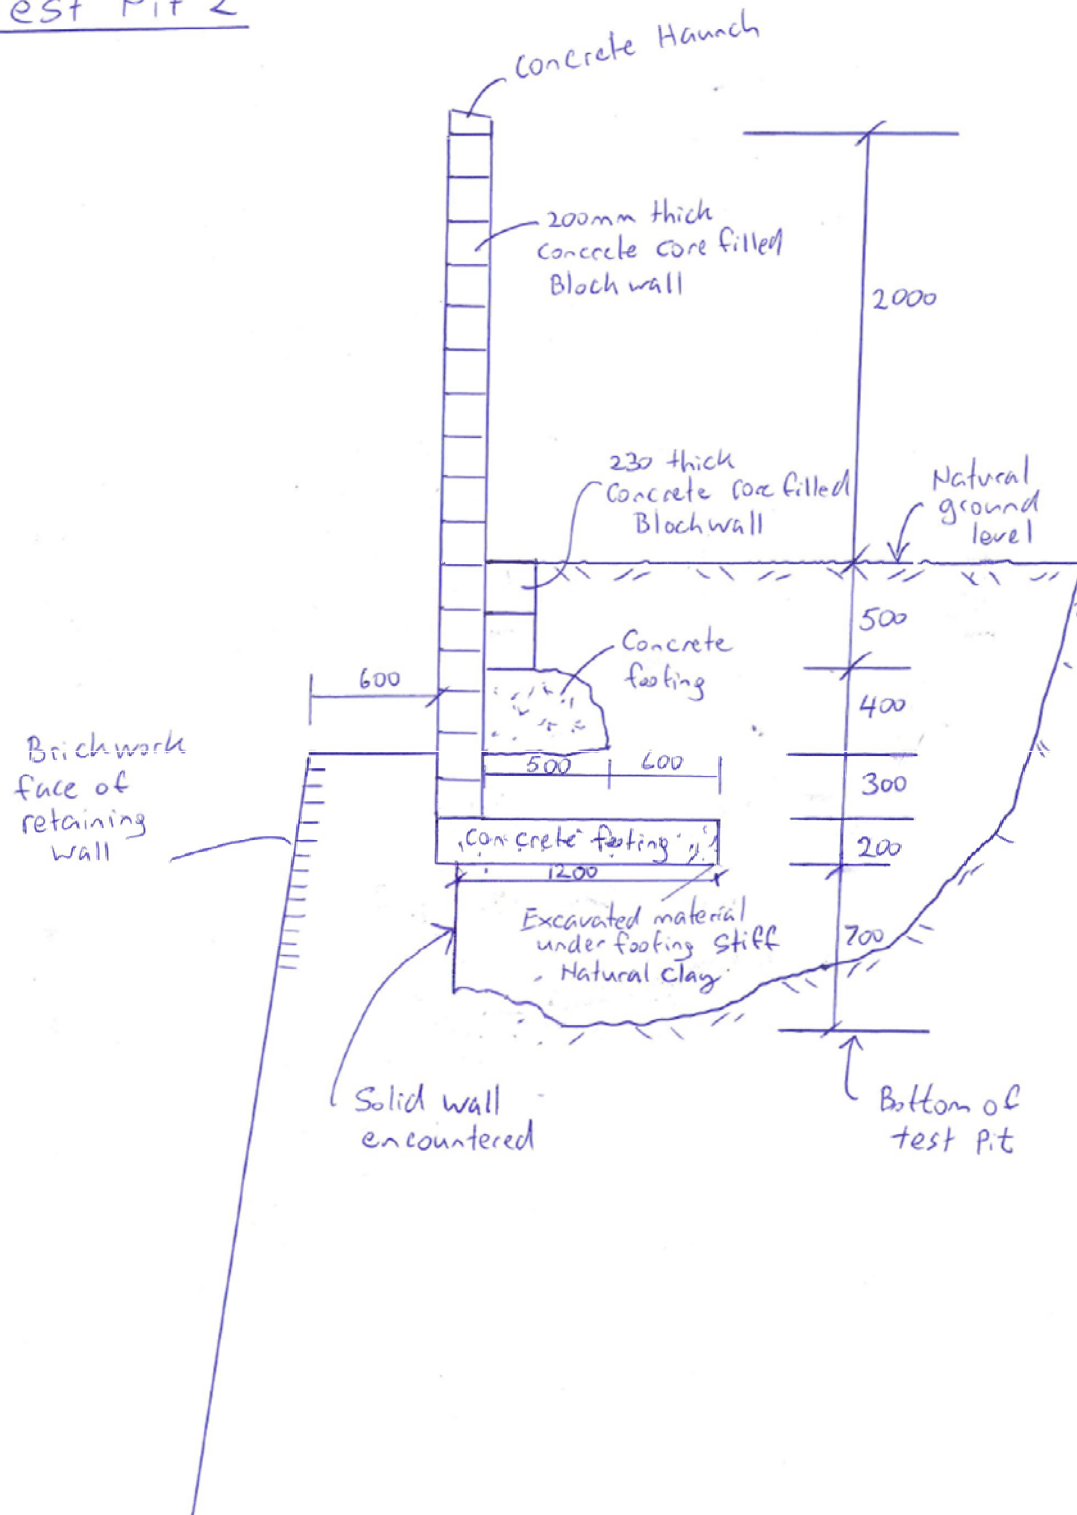 est Pit 2
Concrete Haunch
200mm thick
Concrete core filled
Block wall
2000
230 thick
Concrete core filled
Block wall
Natural
ground
level
500
Concrete
footing
600
400
Brickwork
face of
retaining
wall
500
600
300
Concrete footing
200
1200
Excavated material
under footing stiff
Natural clay
700
Solid wall
encountered
Bottom of
test Pit